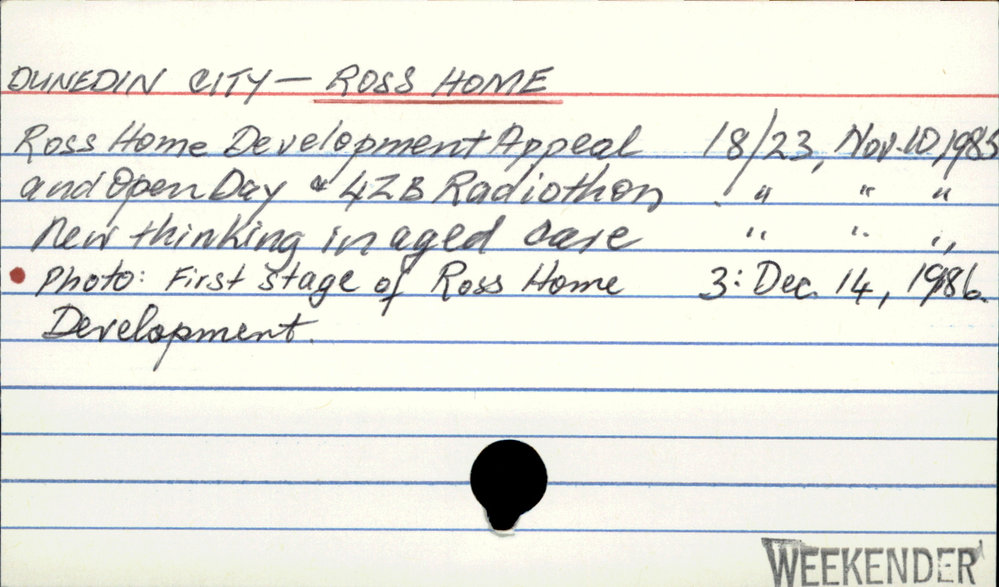 DUNEDIN CITY — ROSS HOME
Ross Home Development Appeal 18/23, Nov. 10, 1985
and Open Day & 4ZB Radiothon " " "
New thinking in aged care " " "
• Photo: First stage of Ross Home 3: Dec. 14, 1986.
Development.
WEEKENDER